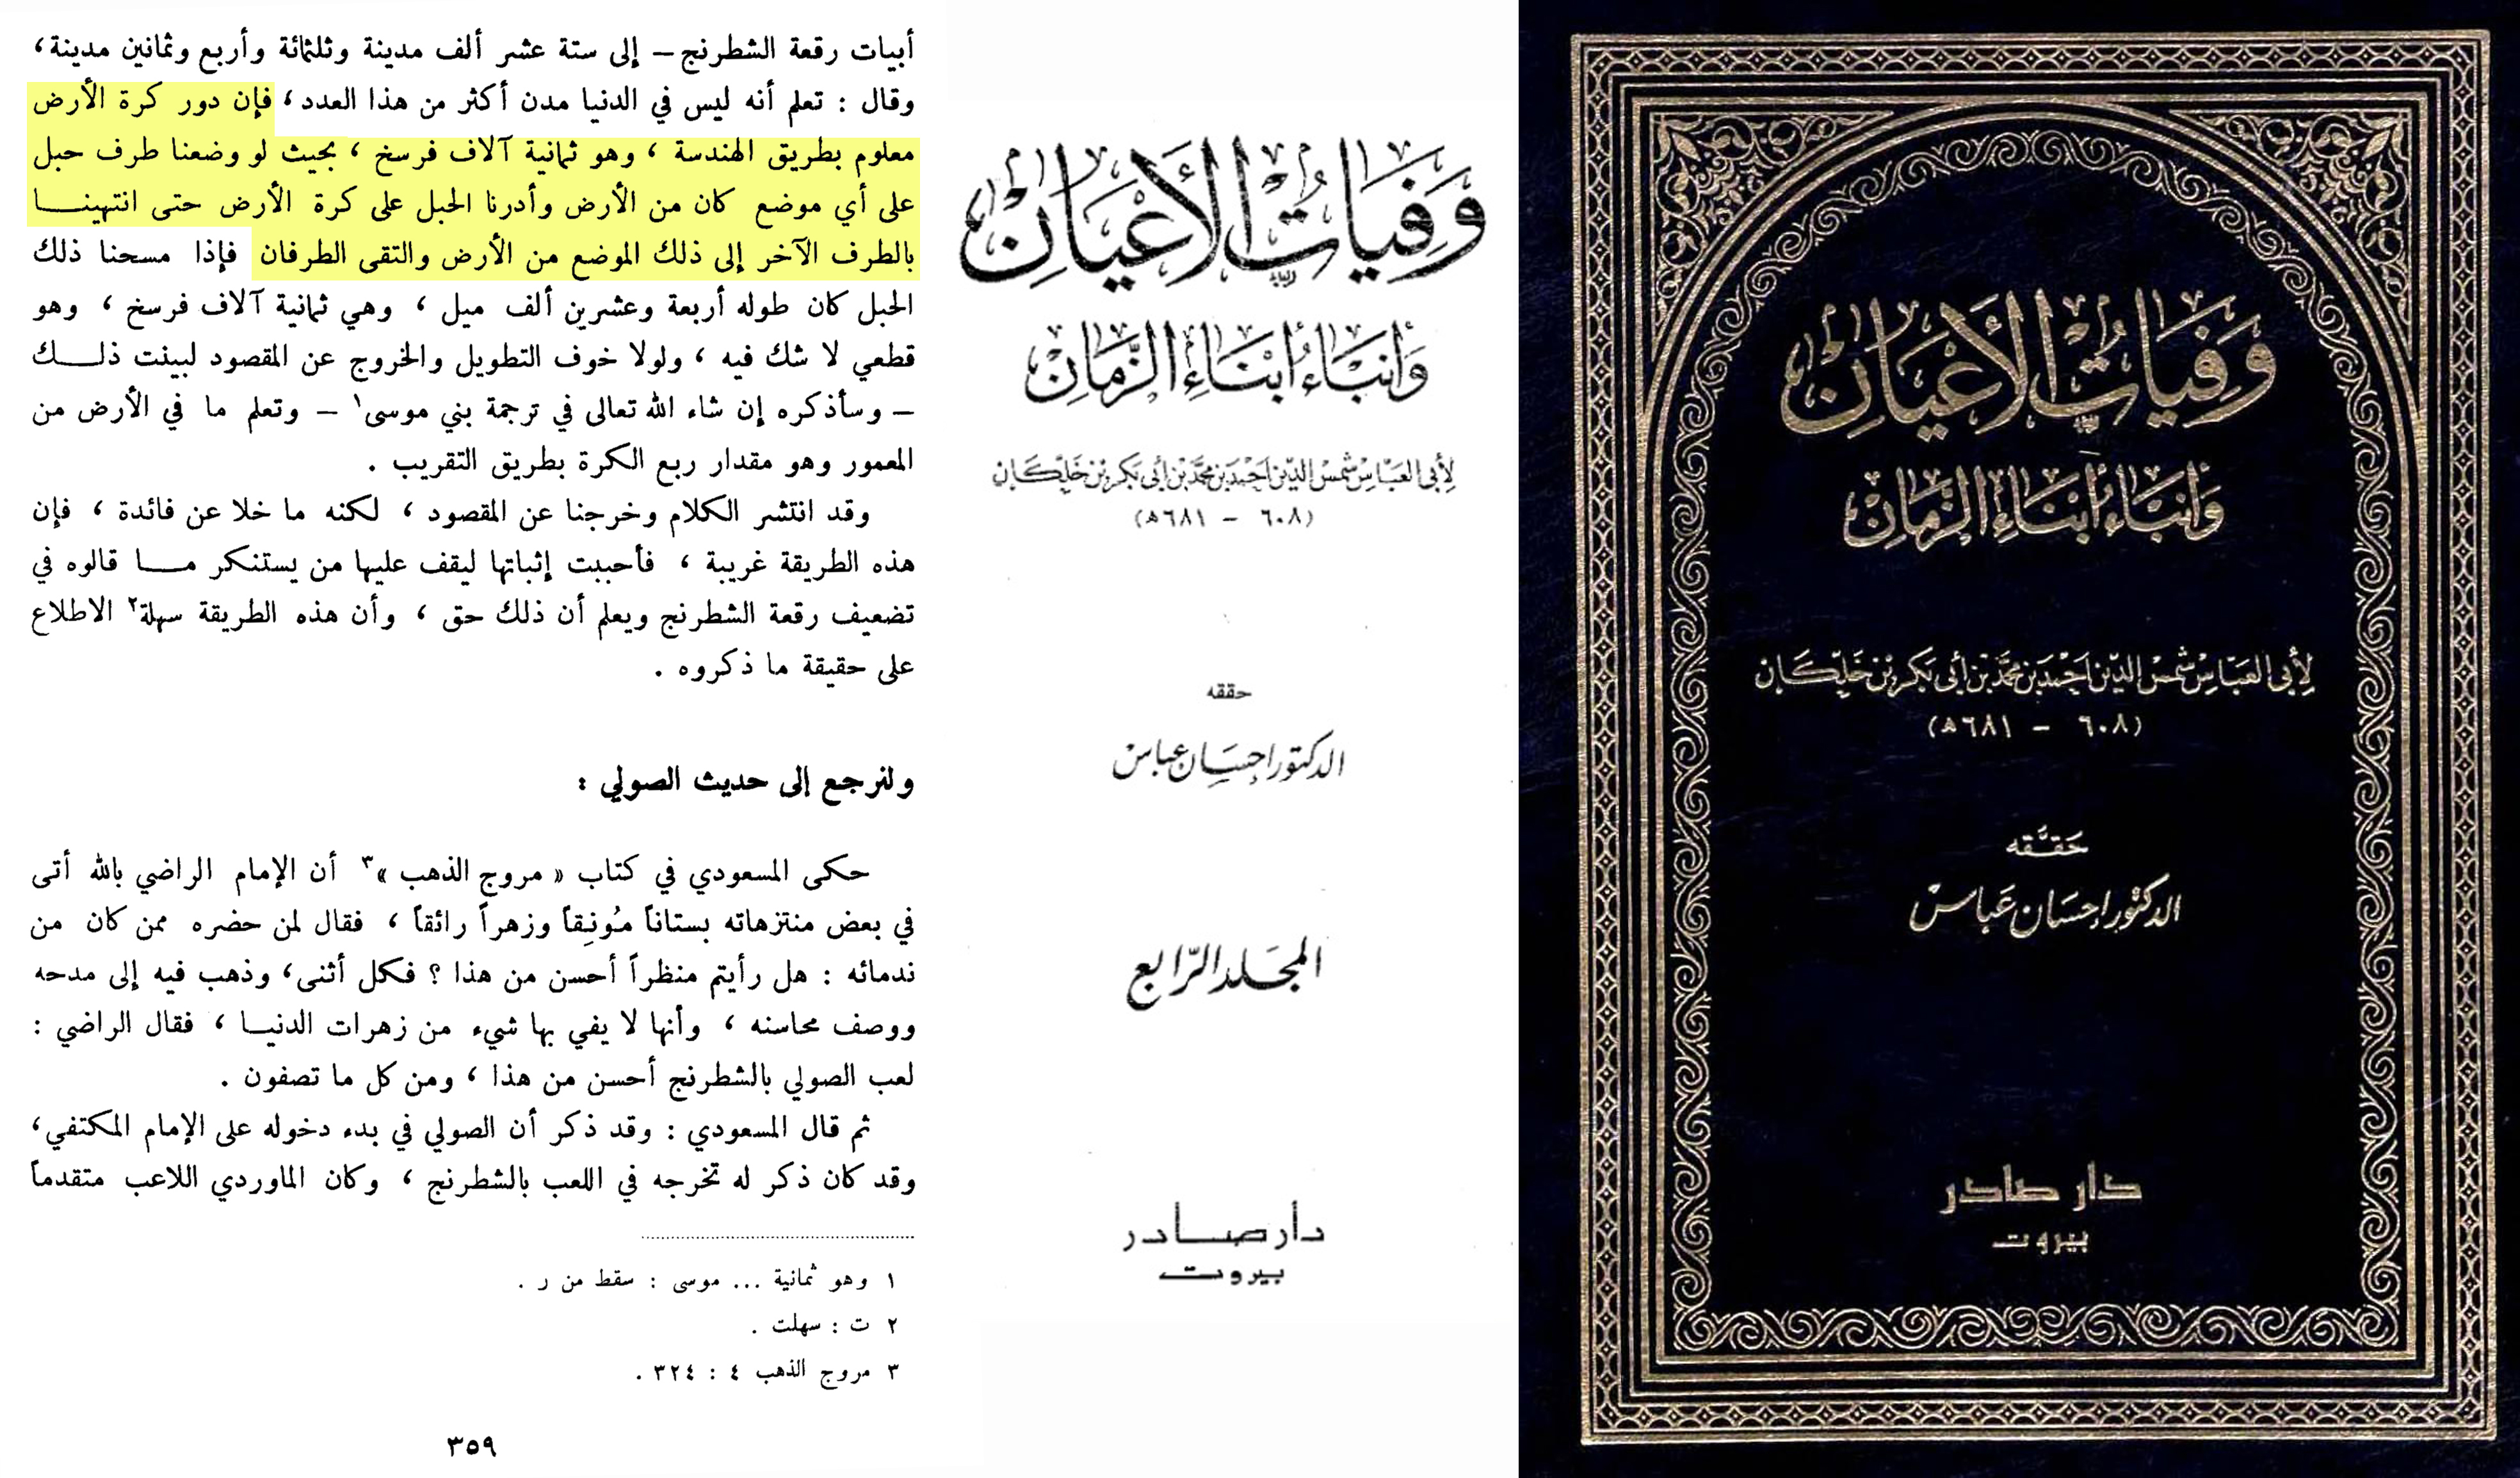 أبيات رقعة الشطرنج – إلى ستة عشر ألف مدينة وثلثمائة وأربع وثمانين مدينة،
وقال : تعلم أنه ليس في الدنيا مدن أكثر من هذا العدد، فإن دور كرة الأرض
معلوم بطريق الهندسة ، وهو ثمانية آلاف فرسخ ، بحيث لو وضعنا طرف حبل
على أي موضع كان من الأرض وأدرنا الحبل على كرة الأرض حتى انتهينا
بالطرف الآخر إلى ذلك الموضع من الأرض والتقى الطرفان فإذا مسحنا ذلك
الحبل كان طوله أربعة وعشرين ألف ميل ، وهي ثمانية آلاف فرسخ ، وهو
قطعي لا شك فيه ، ولولا خوف التطويل والخروج عن المقصود لبينت ذلك
– وسأذكره إن شاء الله تعالى في ترجمة بني موسى١ – وتعلم ما في الأرض من
المعمور وهو مقدار ربع الكرة بطريق التقريب .
وقد انتشر الكلام وخرجنا عن المقصود ، لكنه ما خلا عن فائدة ، فإن
هذه الطريقة غريبة ، فأحببت إثباتها ليقف عليها من يستنكر ما قالوه في
تضعيف رقعة الشطرنج ويعلم أن ذلك حق ، وأن هذه الطريقة سهلة٢ الاطلاع
على حقيقة ما ذكروه .
ولنرجع إلى حديث الصولي :
حكى المسعودي في كتاب « مروج الذهب »٣ أن الإمام الراضي بالله أتى
في بعض منتزهاته بستاناً مُونِقاً وزهراً رائقاً ، فقال لمن حضره ممن كان من
ندمائه : هل رأيتم منظراً أحسن من هذا ؟ فكل أثنى، وذهب فيه إلى مدحه
ووصف محاسنه ، وأنها لا يفي بها شيء من زهرات الدنيا ، فقال الراضي :
لعب الصولي بالشطرنج أحسن من هذا ، ومن كل ما تصفون .
ثم قال المسعودي : وقد ذكر أن الصولي في بدء دخوله على الإمام المكتفي،
وقد كان ذكر له تخرجه في اللعب بالشطرنج ، وكان الماوردي اللاعب متقدماً
١ وهو ثمانية ... موسى : سقط من ر .
٢ ت : سهلت .
٣ مروج الذهب ٤ : ٣٢٤ .
٣٥٩
وَفَيَاتُ الأَعْيَانِ
وَأَنْبَاءُ أَبْنَاءِ الزَّمَانِ
لِأَبِي العَبَّاسِ شَمْسِ الدِّينِ أَحْمَدَ بْنِ مُحَمَّدِ بْنِ أَبِي بَكْرِ بْنِ خَلِّكَانَ
(٦٠٨ – ٦٨١ه)
حققه
الدكتور إحسان عباس
المجلد الرابع
دار صادر
بيروت
وَفَيَاتُ الأَعْيَانِ
وَأَنْبَاءُ أَبْنَاءِ الزَّمَانِ
لِأَبِي العَبَّاسِ شَمْسِ الدِّينِ أَحْمَدَ بْنِ مُحَمَّدِ بْنِ أَبِي بَكْرِ بْنِ خَلِّكَانَ
(٦٠٨ – ٦٨١ه)
حَقَّقَه
الدكتور إحسان عباس
دار صادر
بيروت